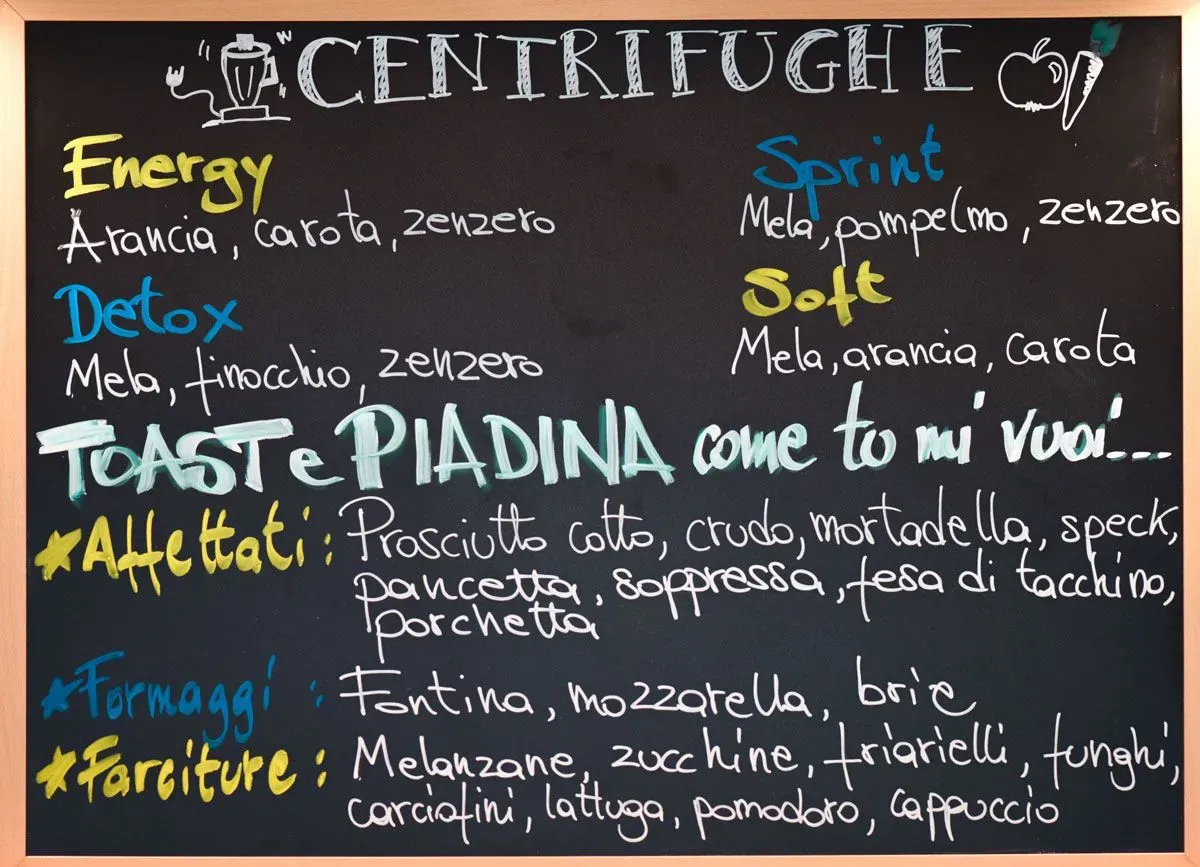 CENTRIFUGHE
Energy
Arancia, carota, zenzero
Sprint
Mela, pompelmo, zenzero
Detox
Mela, finocchio, zenzero
Soft
Mela, arancia, carota
TOAST e PIADINA come to mi vuoi...
Affettati: Prosciutto cotto, crudo, mortadella, speck,
pancetta, soppressa, fesa di tacchino,
porchetta
Formaggi: Fontina, mozzarella, brie
Farciture: Melanzane, zucchine, friarielli, funghi,
carciofini, lattuga, pomodoro, cappuccio